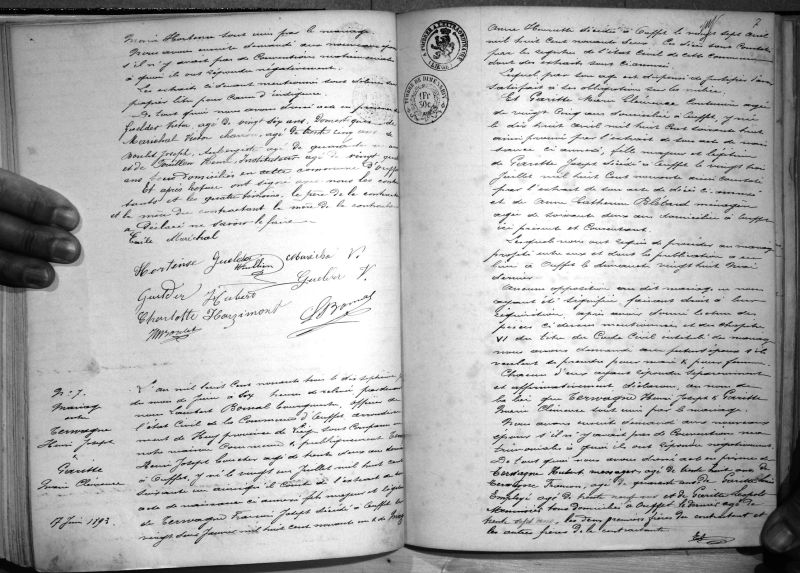 Marie Hortense sont unis par le mariage.
Nous avons ensuite demandé aux nouveaux époux
s'il n'y avait pas de Conventions matrimoniales
à quoi ils ont répondu négativement.
Les extraits ci devant mentionnés sont délivrés
papier libre pour Cause d'indigence.
De tout quoi nous avons dressé acte en présence
Guelder Victor agé de vingt six ans, Domestique
Maréchal Victor charron, agé de trente cinq ans
Boulet Joseph, agé de quarante
et de Houllion Henri Instituteur agé de vingt quatre
ans tous domiciliés en cette commune d'Ouffet
Et après lecture ont signé avec nous les con-
tractants et les quatre témoins, le père de la contractante
et la mère du contractant la mère de la contractante
a déclaré ne savoir le faire
Emile Maréchal
Hortense Guelder Houllion Maréchal V.
Guelder Hubert Guelder V.
Charlotte Harzimont
Boulet
Bomal
N° 7.
Mariage
entre
Terwagne
Henri Joseph
&
Paritte
Marie Clémence
17 Juin 1893.
L'an mil huit Cent nonante trois le dix septième jour
du mois de Juin à six heures de relevée pardevant
nous Bomal Bourgmestre officier de
l'état Civil de la Commune d'Ouffet arrondisse-
ment de Huy province de Liège sont Comparus en
notre maison Communale & publiquement
Henri Joseph agé de trente deux ans
à Ouffet, y né le vingt six Juillet mil huit cent
soixante un ainsi qu'il Conste de l'extrait de son
acte de naissance ci annexé fils majeur et légitime
de Terwagne François Joseph décédé à Ouffet le
vingt six Janvier mil huit cent nonante un & de
TIMBRE DE DIMENSION
1Fr
50c.
7
Anne Henriette décédée à Ouffet le vingt sept avril
mil huit Cent nonante deux. Ce décès sont Constatés
par les registres de l'état Civil de cette Commune
dont des extraits sont ci annexés.
Lequel par son age est dispensé de justifier d'avoir
satisfait à ses obligations sur la milice.
Et Paritte Marie Clémence Couturière agée
de vingt Cinq ans domiciliée à Ouffet, y née
le dix huit avril mil huit Cent soixante huit
ainsi prouvé par l'extrait de son acte de nais-
sance ci annexé, fille majeure et légitime
de Paritte Joseph décédé à Ouffet le vingt trois
Juillet mil huit Cent nonante ainsi Constaté
par l'extrait de son acte de décès ci annexé
et de Anne Catherine ménagère
agée de soixante deux ans domiciliée à Ouffet
ici présente et Consentante.
Lesquels nous ont requis de procéder au mariage
projeté entre eux et dont la publication a eu
lieu à Ouffet le dimanche vingt huit mai
dernier.
Aucune opposition au dit mariage ne nous
ayant été signifiée, faisant droit à leur
réquisition, après avoir donné lecture des
pièces ci devant mentionnées et du chapitre
VI du titre du Code Civil intitulé du mariage
nous avons demandé aux futurs époux s'ils
veulent se prendre pour mari & pour femme
Chacun d'eux ayant répondu séparément
et affirmativement déclarons, au nom de
la loi que Terwagne Henri Joseph & Paritte
Marie Clémence sont unis par le mariage.
Nous avons ensuite demandé aux nouveaux
époux s'il n'y avait pas de Conventions ma-
trimoniales à quoi ils ont répondu négativement.
De tout quoi nous avons dressé acte en présence de
Terwagne Hubert messager, agé de trente huit ans de
Terwagne François, agé de quarante ans de Paritte
Employé agé de trente neuf ans et de Paritte Léopold
Menuisier tous domiciliés à Ouffet le dernier agé de
trente sept ans, les deux premiers frères du contractant et
les autres frères de la contractante